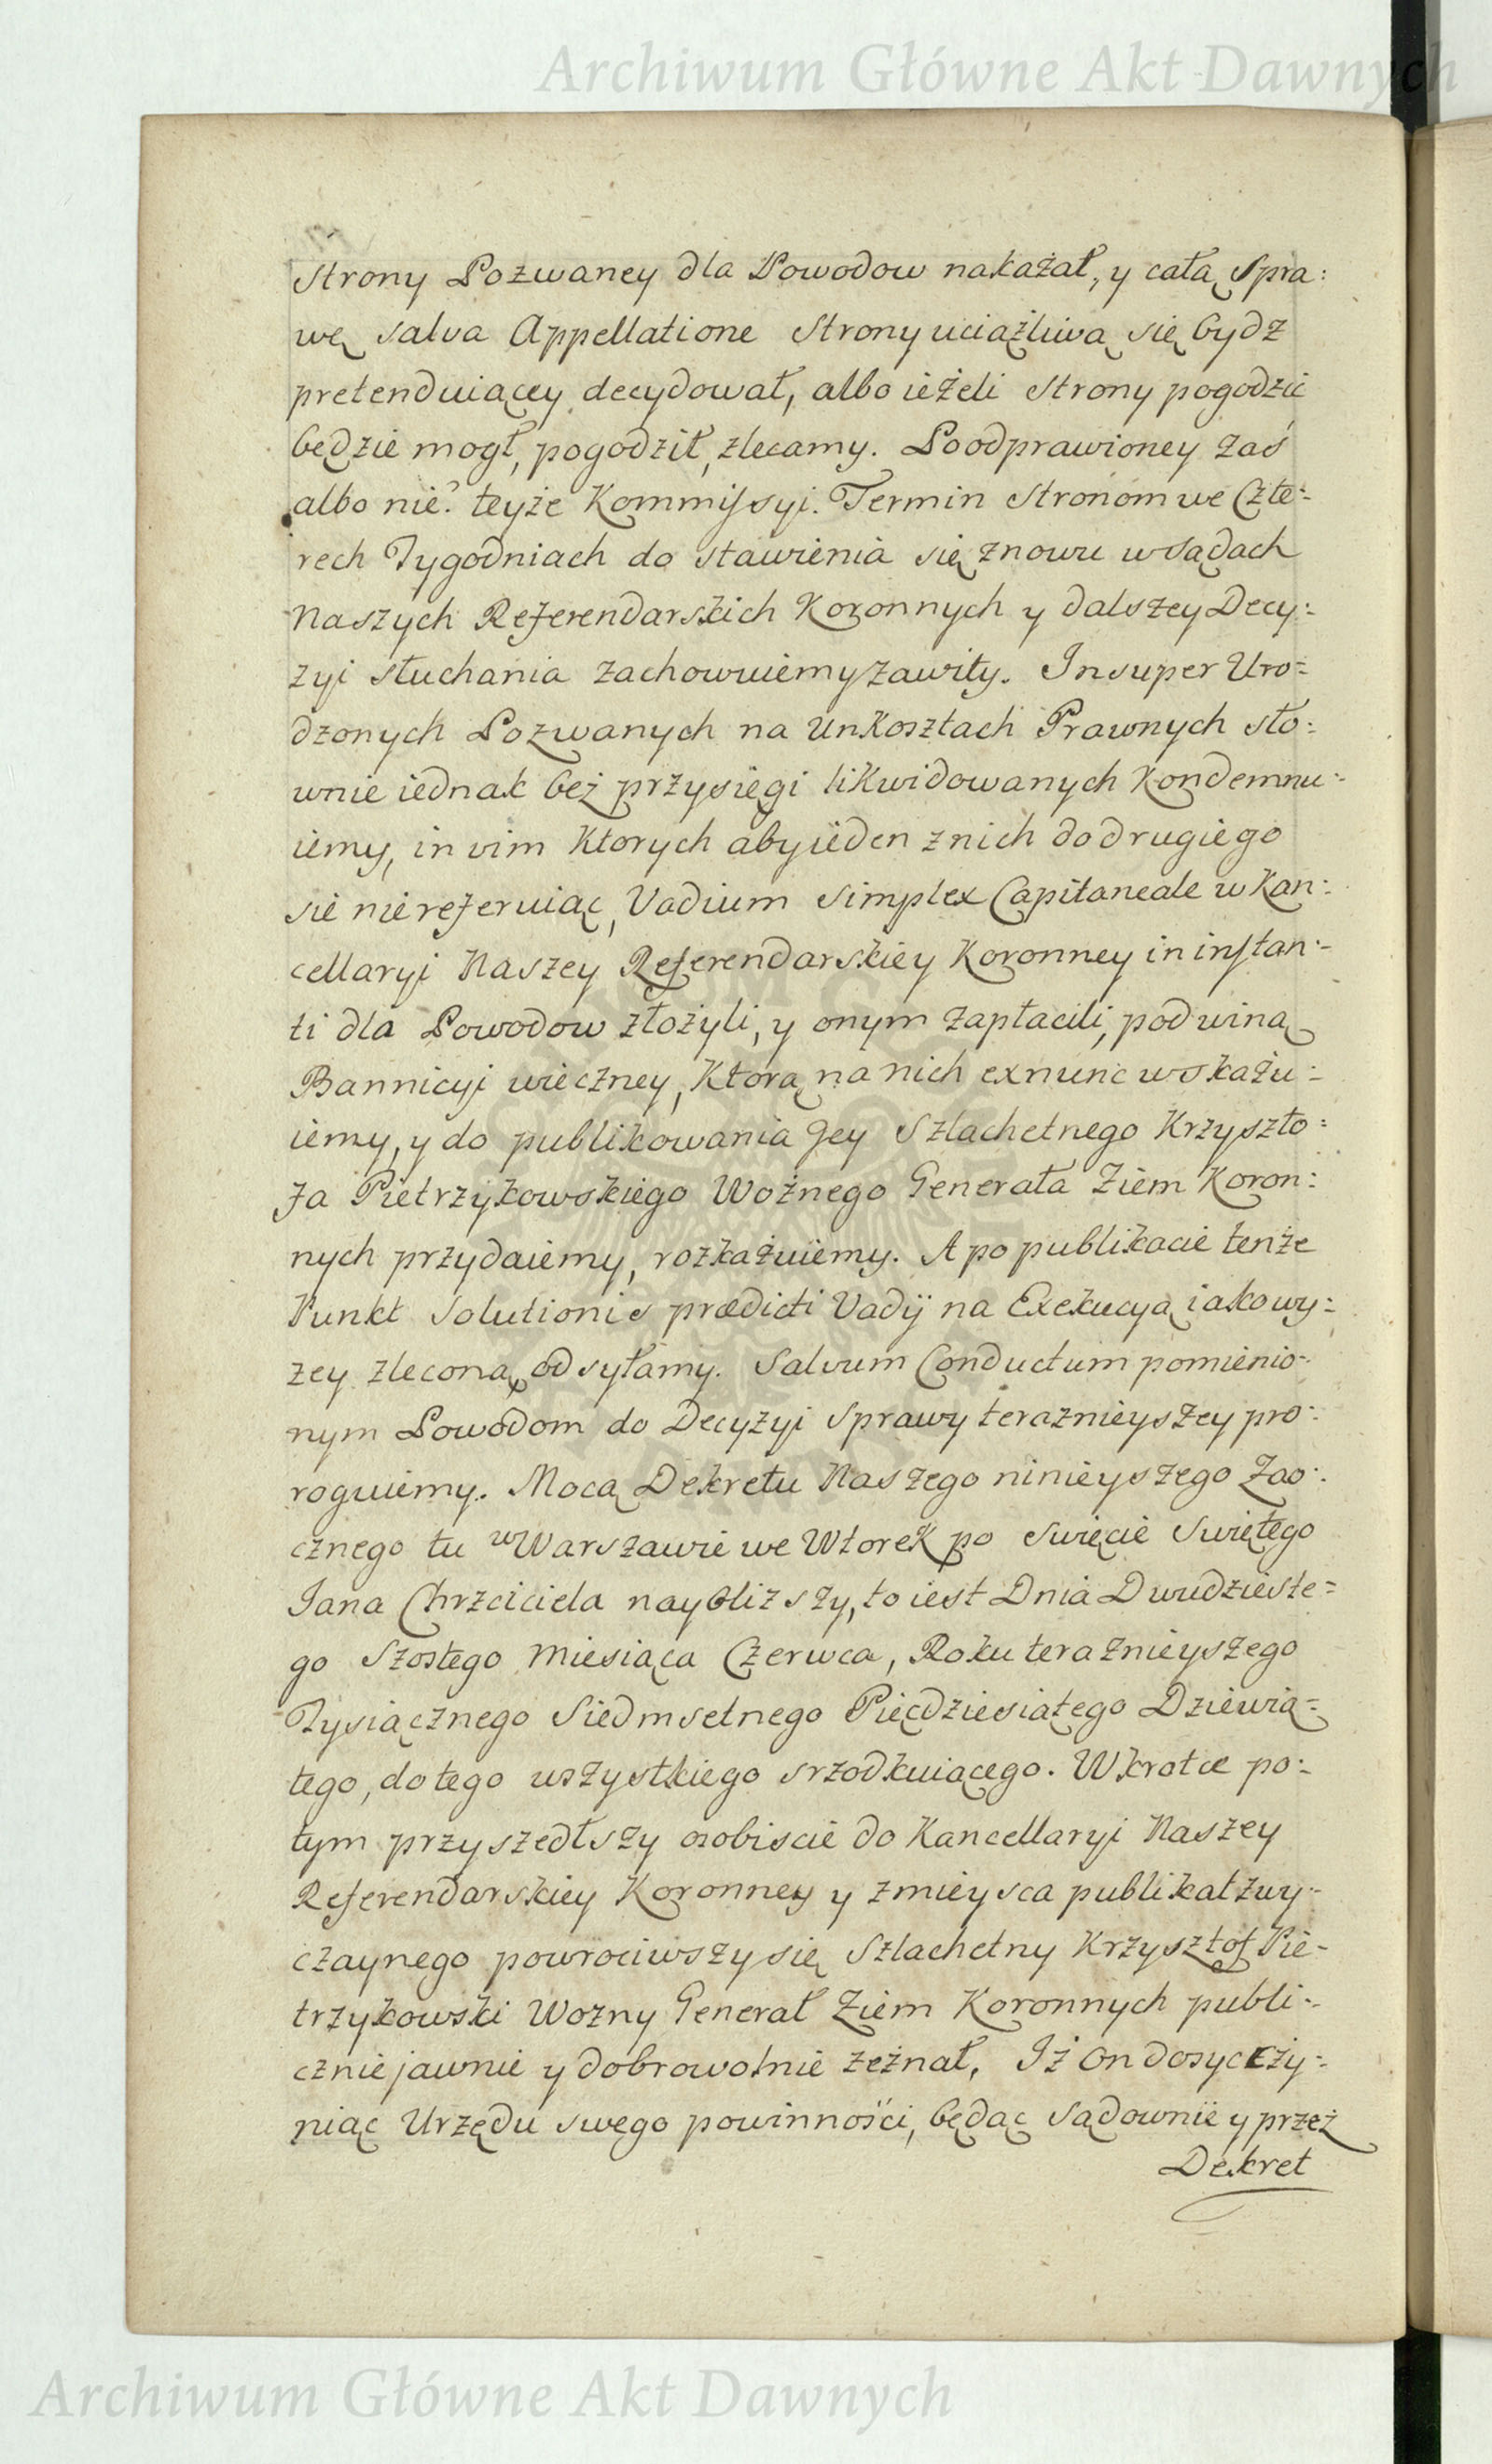 Archiwum Główne Akt Dawnych
Strony Pozwaney dla Powodow nakazał, y całą Spra:
wę salva Appellatione Strony uciążliwą się bydz
pretenduiącey decydował, albo ieżeli Strony pogodzić
będzie mogł, pogodził, zlecamy. Po odprawioney zaś
albo nie? teyże Kommissyi. Termin Stronom we Czte:
rech Tygodniach do stawienia się znowu w Sądach
Naszych Referendarskich Koronnych y dalszey Decy:
zyi słuchania zachowuiemy zawity. Insuper Uro:
dzonych Pozwanych na Unkosztach Prawnych sło:
wnie iednak bez przysięgi likwidowanych Kondemnu:
iemy, in vim Ktorych aby ieden z nich do drugiego
się nie referuiąc, Vadium Simplex Capitaneale w Kan:
cellaryi Naszey Referendarskiey Koronney in instan:
ti dla Powodow złożyli, y onym zapłacili, pod winą
Bannicyi wieczney, Ktorą na nich exnunc wskazu:
iemy, y do publikowania Jey Szlachetnego Krzyszto:
fa Pietrzykowskiego Woźnego Generała Ziem Koron:
nych przydaiemy, rozkazuiemy. A po publikacie tenże
Punkt Solutionis prædicti Vadij na Exekucyą iako wy:
zey zleconą, odsyłamy. Salvum Conductum pomienio:
nym Powodom do Decyzyi Sprawy terazniejszey pro:
roguiemy. Mocą Dekretu Naszego ninieyszego Zao:
cznego tu w Warszawie we Wtorek po Swięcie Swiętego
Jana Chrzciciela nayblizszy, to iest Dnia Dwudzieste:
go Szostego Miesiąca Czerwca, Roku teraznieyszego
Tysiącznego Siedmsetnego Pięcdziesiątego Dziewią:
tego, do tego wszystkiego srzodkuiącego. Wkrotce po:
tym przyszedłszy osobiscie do Kancellaryi Naszey
Referendarskiey Koronney y z mieysca publikat zwy:
czaynego powrociwszy się Szlachetny Krzysztof Pie:
trzykowski Wozny Generał Ziem Koronnych publi:
cznie jawnie y dobrowolnie zeznał. Iż On dosyc czy:
niąc Urzędu swego powinności, będąc Sądownie y przez
Dekret
Archiwum Główne Akt Dawnych